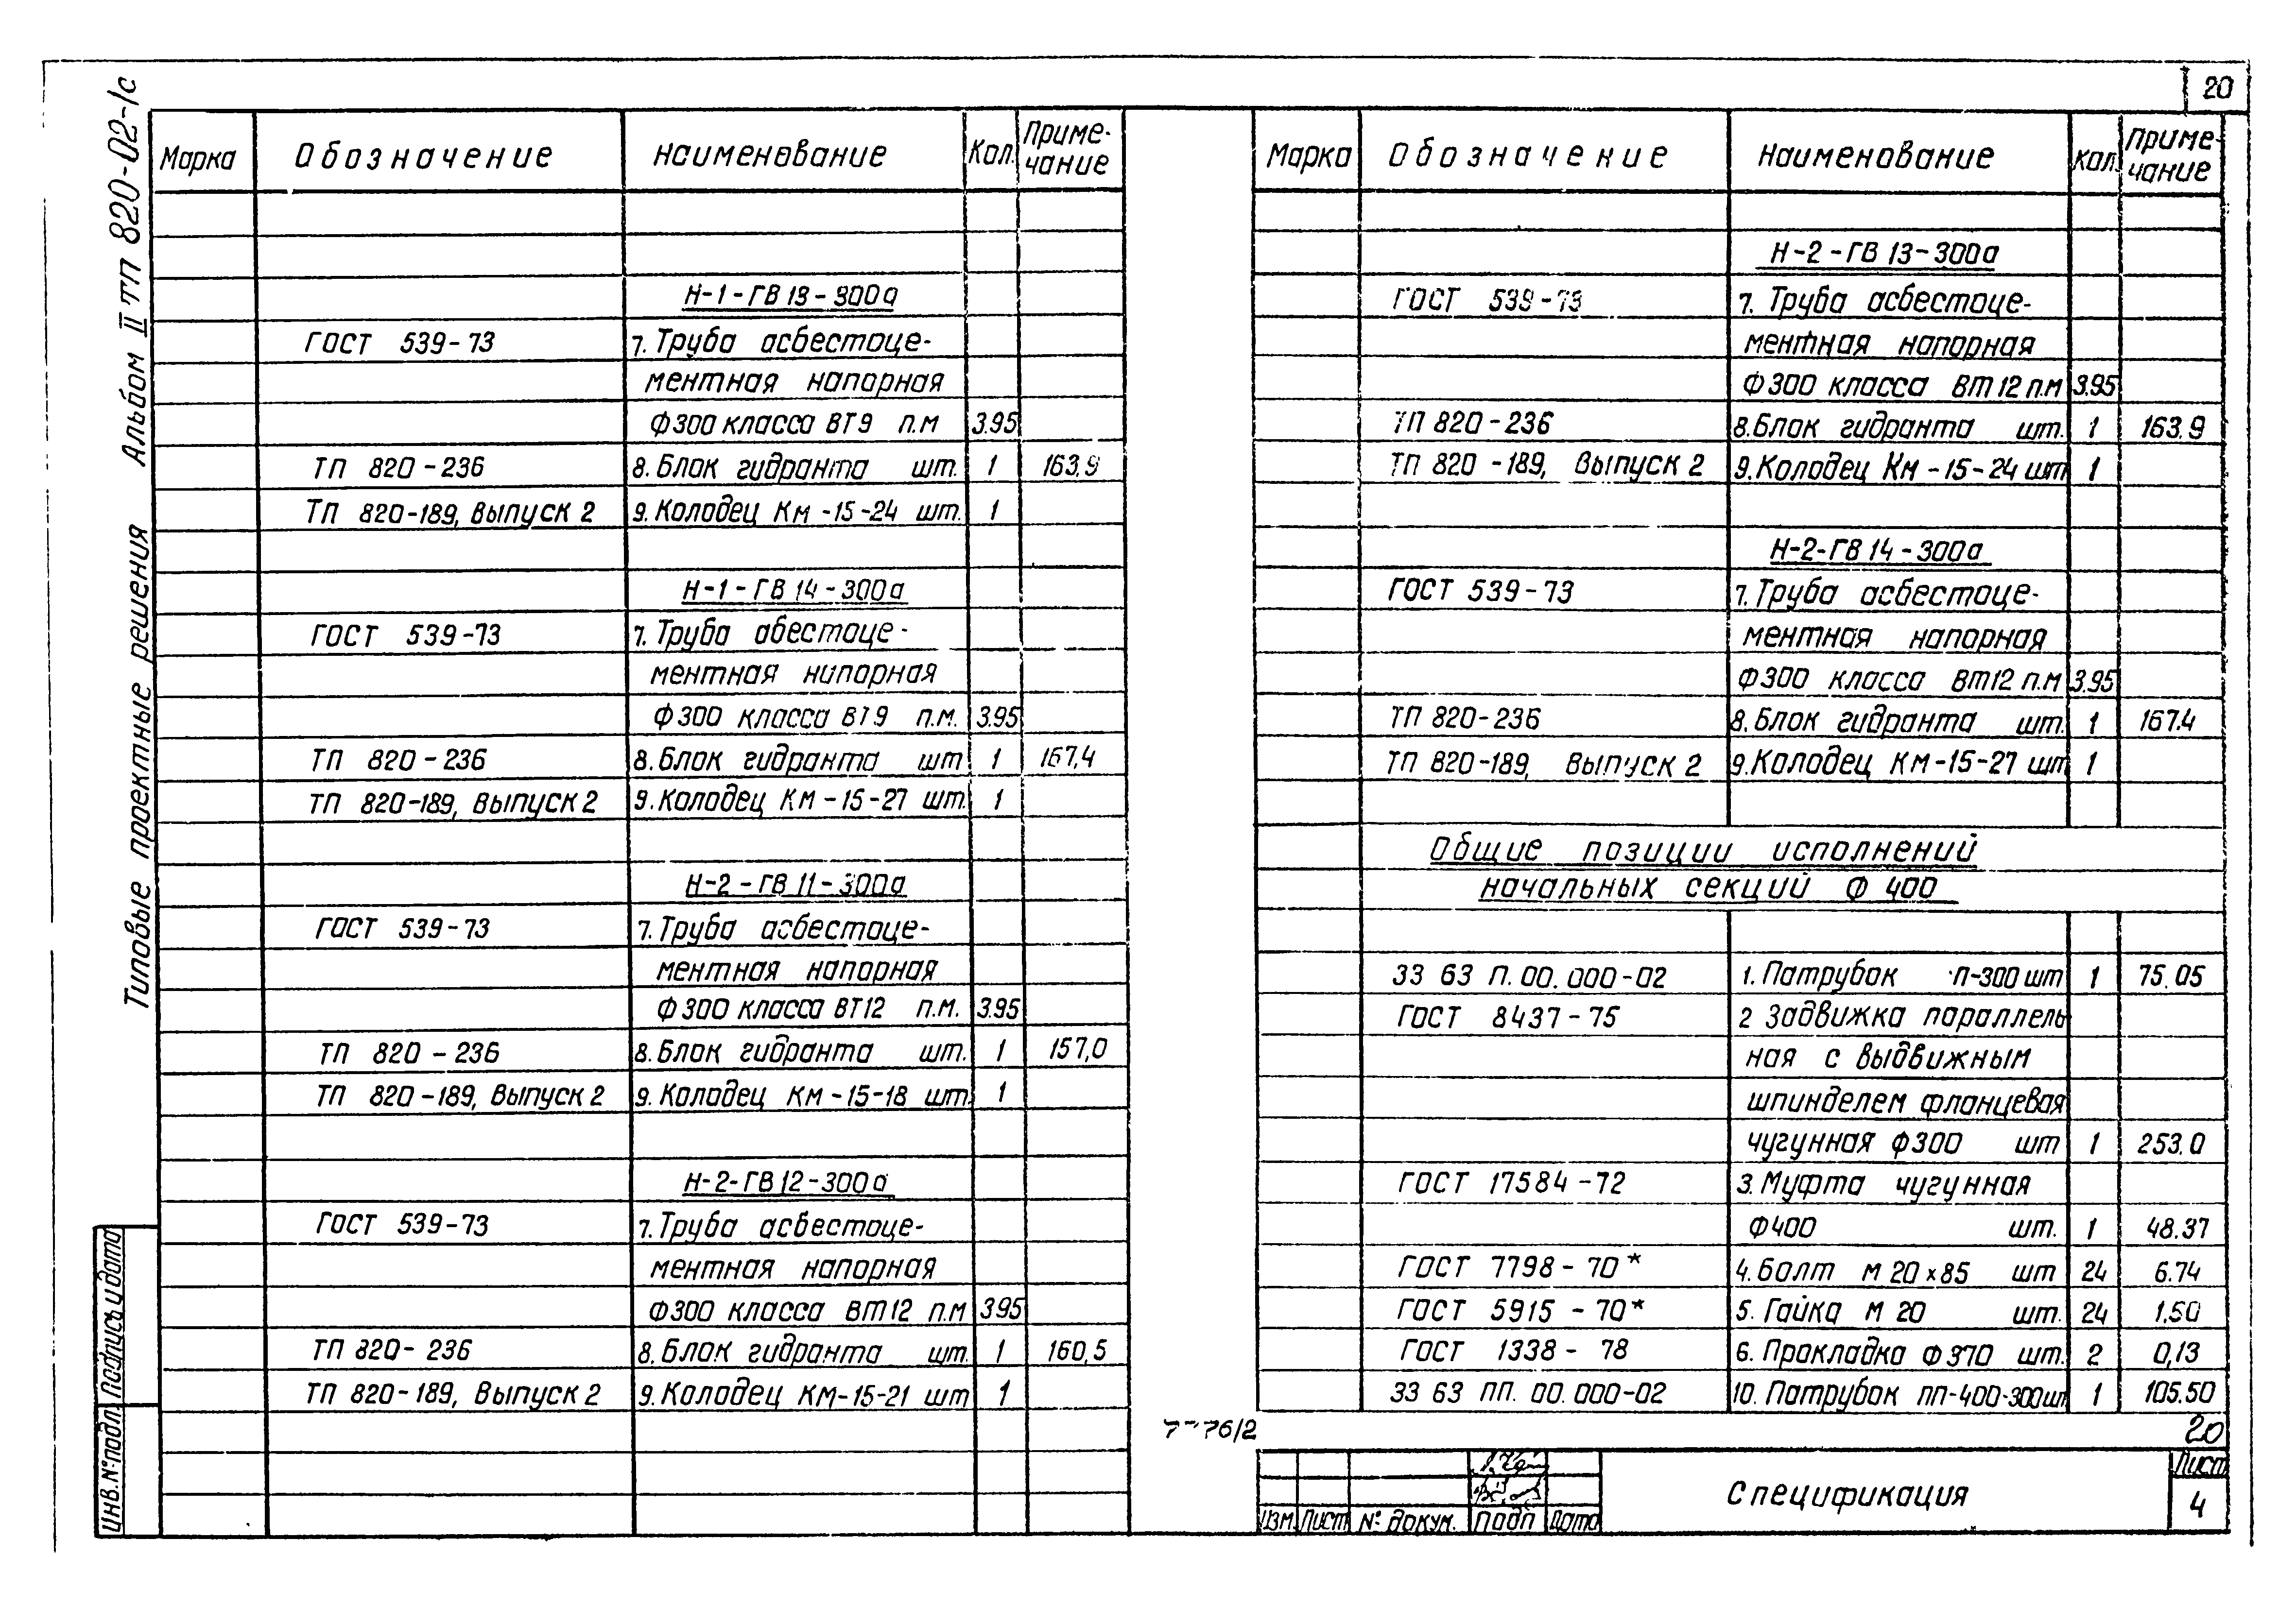 20
Типовые проектные решения Альбом II ТП 820-02-1с
Марка Обозначение Наименование Кол. Приме-
чание
Н-1-ГВ 13-300а
ГОСТ 539-73 7. Труба асбестоце-
ментная напорная
Ф300 класса ВТ9 п.м 3.95
ТП 820-236 8. Блок гидранта шт. 1 163.9
ТП 820-189, Выпуск 2 9. Колодец Км-15-24 шт. 1
Н-1-ГВ 14-300а
ГОСТ 539-73 7. Труба абестоце-
ментная нипорная
Ф300 класса ВТ9 п.м. 3.95
ТП 820-236 8. Блок гидранта шт 1 167,4
ТП 820-189, Выпуск 2 9. Колодец Км-15-27 шт. 1
Н-2-ГВ 11-300а
ГОСТ 539-73 7. Труба асбестоце-
ментная напорная
Ф300 класса ВТ12 п.м. 3.95
ТП 820-236 8. Блок гидранта шт. 1 157,0
ТП 820-189, Выпуск 2 9. Колодец Км-15-18 шт. 1
Н-2-ГВ 12-300а
ГОСТ 539-73 7. Труба асбестоце-
ментная напорная
Ф300 класса ВТ12 п.м 3.95
ТП 820-236 8. Блок гидранта шт. 1 160,5
ТП 820-189, Выпуск 2 9. Колодец КМ-15-21 шт 1
Марка Обозначение Наименование Кол. Приме-
чание
Н-2-ГВ 13-300а
ГОСТ 539-73 7. Труба асбестоце-
ментная напорная
Ф300 класса ВТ12 п.м 3.95
ТП 820-236 8. Блок гидранта шт. 1 163.9
ТП 820-189, Выпуск 2 9. Колодец Км-15-24 шт 1
Н-2-ГВ 14-300а
ГОСТ 539-73 7. Труба асбестоце-
ментная напорная
Ф300 класса ВТ12 п.м 3.95
ТП 820-236 8. Блок гидранта шт. 1 167.4
ТП 820-189, Выпуск 2 9. Колодец КМ-15-27 шт 1
Общие позиции исполнений
начальных секций Ф 400
33 63 П. 00. 000-02 1. Патрубок П-300 шт 1 75.05
ГОСТ 8437-75 2 Задвижка параллель
ная с выдвижным
шпинделем фланцевая
чугунная Ф300 шт 1 253.0
ГОСТ 17584-72 3. Муфта чугунная
Ф400 шт. 1 48.37
ГОСТ 7798-70* 4. Болт М 20×85 шт 24 6.74
ГОСТ 5915-70* 5. Гайка М 20 шт. 24 1.50
ГОСТ 1338-78 6. Прокладка Ф370 шт. 2 0,13
33 63 ПП. 00. 000-02 10. Патрубок ПП-400-300 шт 1 105.50
20
Изм. Лист № докум. Подп Дата
Спецификация
Лист
4
Инв. № подл. Подпись и дата